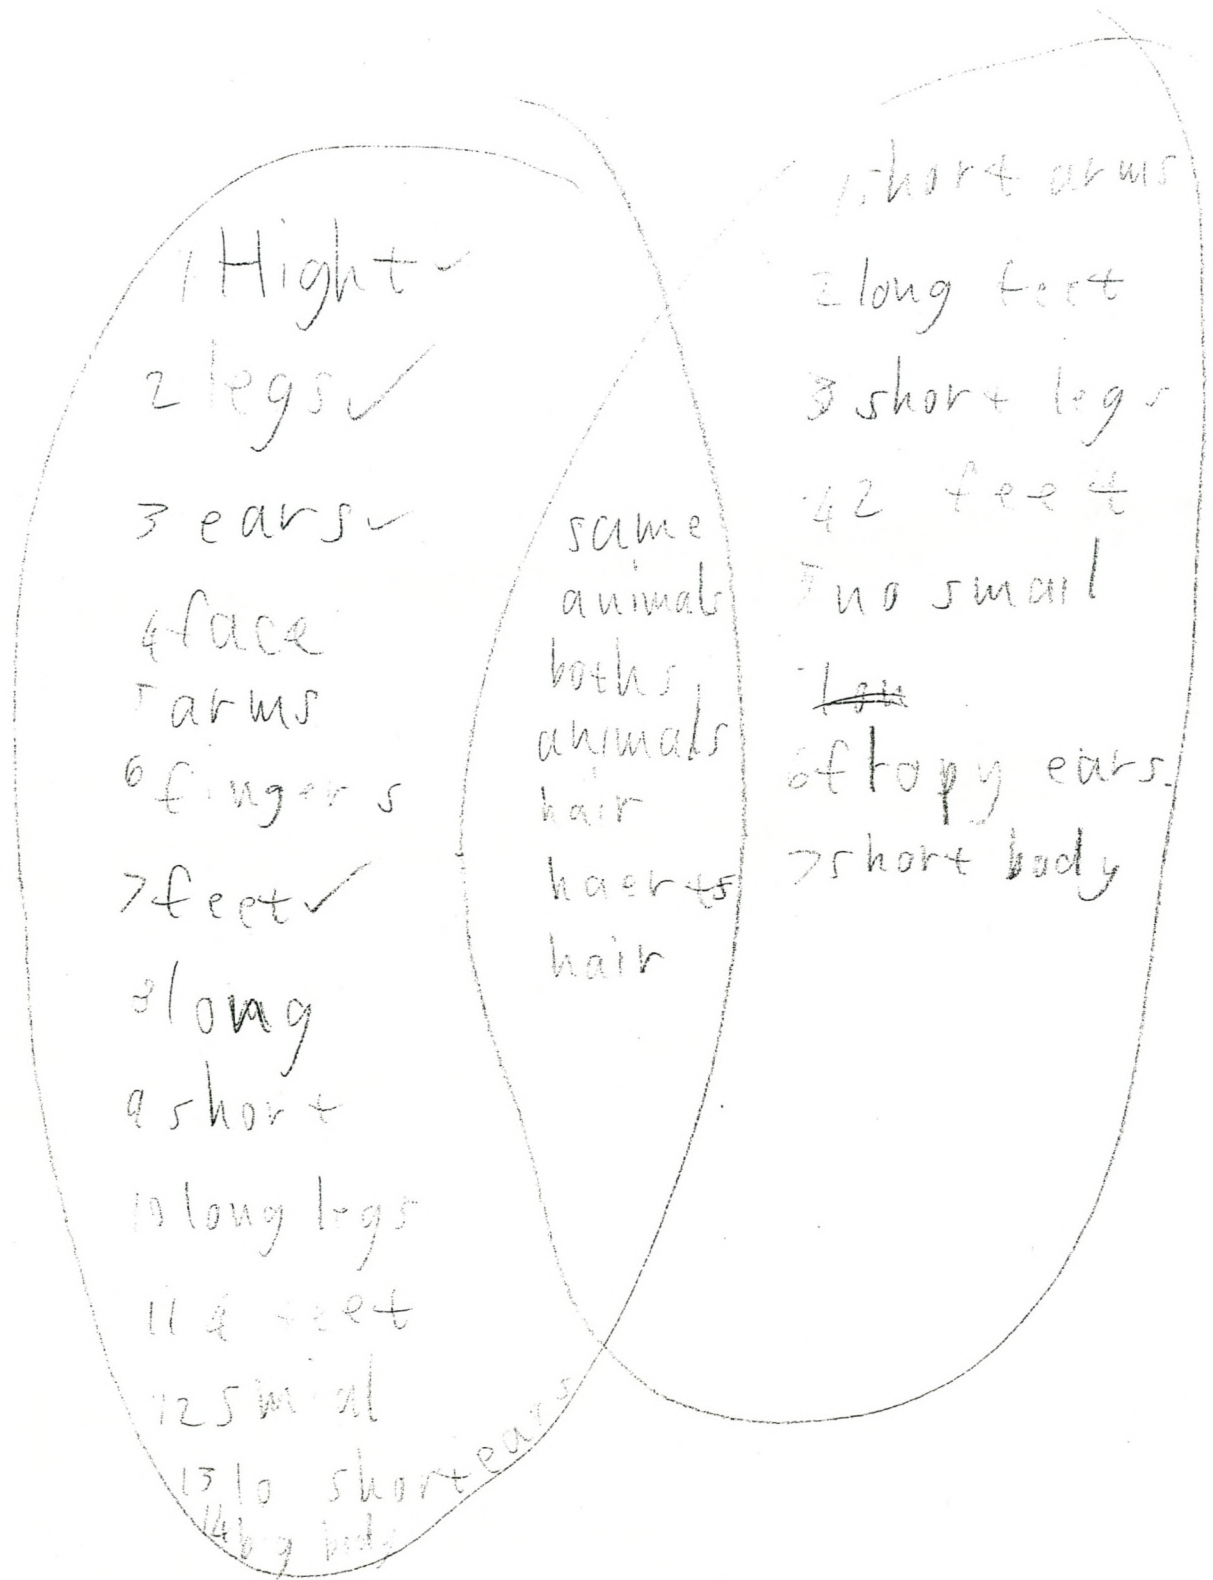 1 Hight ✓
2 legs ✓
3 ears ✓
4 face
5 arms
6 fingers
7 feet ✓
8 long
9 short
10 long legs
11 4 feet
12 smial
13 lo short ears
14 big body
same
animals
boths
animals
hair
haerts
hair
1 short arms
2 long feet
3 short legs
4 2 feet
5 no smail
6 flopy ears.
7 short body